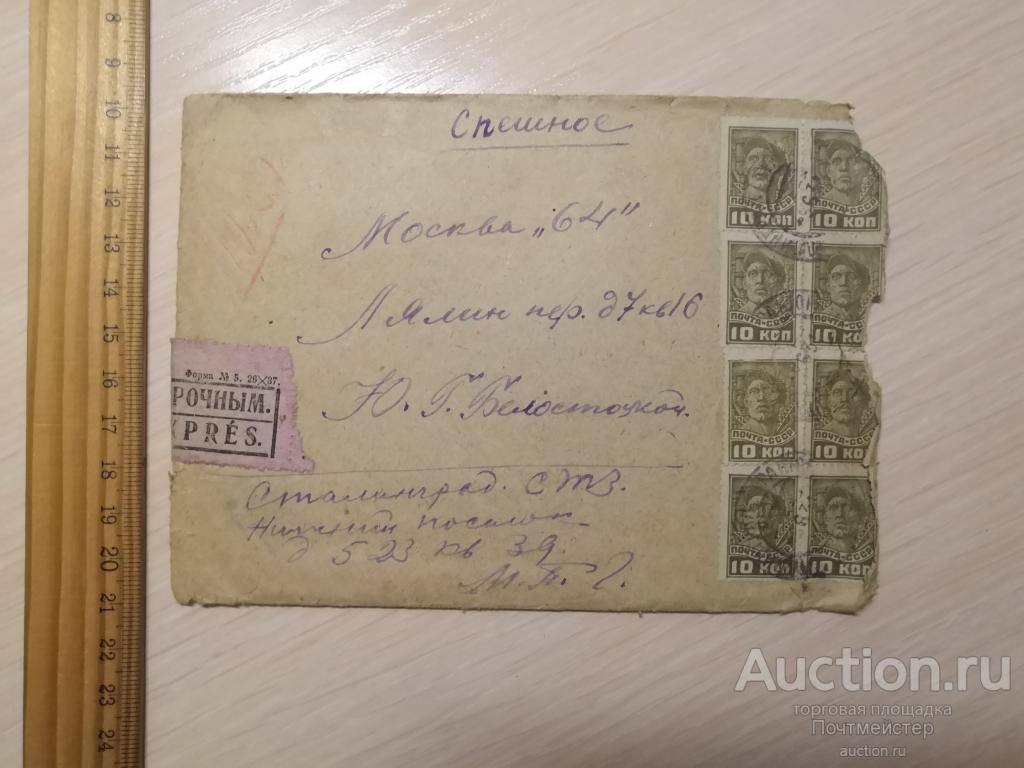 Спешное
Москва „64"
Лялин пер. д7кв16
Ю. Г. Белостоцкой.
Форма № 5. 26X37.
РОЧНЫМ.
XPRÉS.
Сталинград. СТЗ.
Нижний поселок
д 523 кв 39.
М. П. Г.
ПОЧТА-СССР
10 КОП
ПОЧТА-СССР
10 КОП
ПОЧТА-СССР
10 КОП
ПОЧТА-СССР
10 КОП
ПОЧТА-СССР
10 КОП
ПОЧТА-СССР
10 КО
ПОЧТА-СССР
10 КОП
ПОЧТА-СССР
10 КОП
8
9
10
11
12
13
14
15
16
17
18
19
20
21
22
23
24
Auction.ru
торговая площадка
Почтмейстер
auction.ru